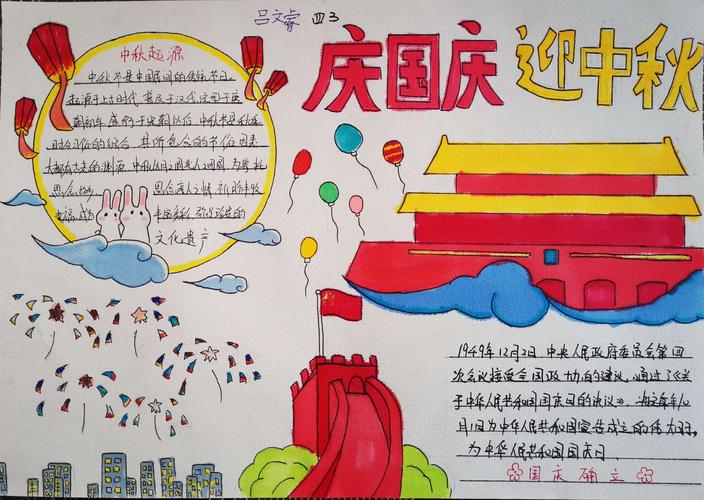 吕文睿 四3
庆国庆 迎中秋
中秋起源
中秋节是中国民间的传统节日。
起源于上古时代,普及于汉代,定型于唐
朝初年,盛行于宋朝以后,中秋节是秋季
时令习俗的综合,其所包含的节俗因素
大都有古老的渊源,中秋以月之圆兆人之团圆,为寄托
思念故 思念亲人之情,祈盼丰收
幸福,成为 丰富多彩、弥足珍贵的
文化遗产
1949年12月2日,中央人民政府委员会第四
次会议接受全国政协的建议,通过了《关
于中华人民共和国国庆日的决议》,决定每年
月1日为中华人民共和国宣告成立的伟大日子,
为中华人民共和国国庆日。
国庆确立